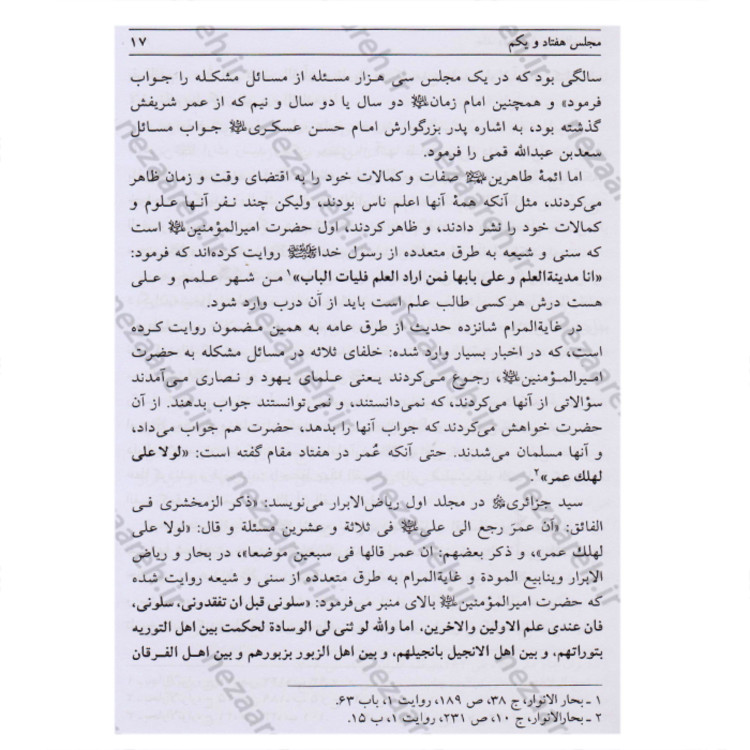 مجلس هفتاد و یکم ۱۷
سالگی بود که در یک مجلس سی هزار مسئله از مسائل مشکله را جواب
فرمود» و همچنین امام زمان دو سال یا دو سال و نیم که از عمر شریفش
گذشته بود، به اشاره پدر بزرگوارش امام حسن عسکری جواب مسائل
سعدبن عبدالله قمی را فرمود.
اما ائمۀ طاهرین صفات و کمالات خود را به اقتضای وقت و زمان ظاهر
می‌کردند، مثل آنکه همۀ آنها اعلم ناس بودند، ولیکن چند نفر آنها علوم و
کمالات خود را نشر دادند، و ظاهر کردند، اول حضرت امیرالمؤمنین است
که سنی و شیعه به طرق متعدده از رسول خدا روایت کرده‌اند که فرمود:
«انا مدینةالعلم و علی بابها فمن اراد العلم فلیات الباب»۱ من شهر علمم و علی
هست درش هر کسی طالب علم است باید از آن درب وارد شود.
در غایةالمرام شانزده حدیث از طرق عامه به همین مضمون روایت کرده
است، که در اخبار بسیار وارد شده: خلفای ثلاثه در مسائل مشکله به حضرت
امیرالمؤمنین، رجوع می‌کردند یعنی علمای یهود و نصاری می‌آمدند
سؤالاتی از آنها می‌کردند، که نمی‌دانستند، و نمی‌توانستند جواب بدهند. از آن
حضرت خواهش می‌کردند که جواب آنها را بدهد، حضرت هم جواب می‌داد،
و آنها مسلمان می‌شدند. حتی آنکه عُمر در هفتاد مقام گفته است: «لولا علی
لهلك عمر»۲.
سید جزائری در مجلد اول ریاض‌الابرار می‌نویسد: «ذکر الزمخشری فی
الفائق: «ان عمر رجع الی علی فی ثلاثة و عشرین مسئلة و قال: «لولا علی
لهلك عمر»، و ذکر بعضهم: ان عمر قالها فی سبعین موضعا»، در بحار و ریاض
الابرار وینابیع المودة و غایةالمرام به طرق متعدده از سنی و شیعه روایت شده
که حضرت امیرالمؤمنین بالای منبر می‌فرمود: «سلونی قبل ان تفقدونی، سلونی،
فان عندی علم الاولین والاخرین، اما والله لو ثنی لی الوسادة لحکمت بین اهل التوریه
بتوراتهم، و بین اهل الانجیل بانجیلهم، و بین اهل الزبور بزبورهم و بین اهل الفرقان
۱ ـ بحار الانوار، ج ۳۸، ص ۱۸۹، روایت ۱، باب ۶۳.
۲ ـ بحارالانوار، ج ۱۰، ص ۲۳۱، روایت ۱، ب ۱۵.
nezaareh.ir